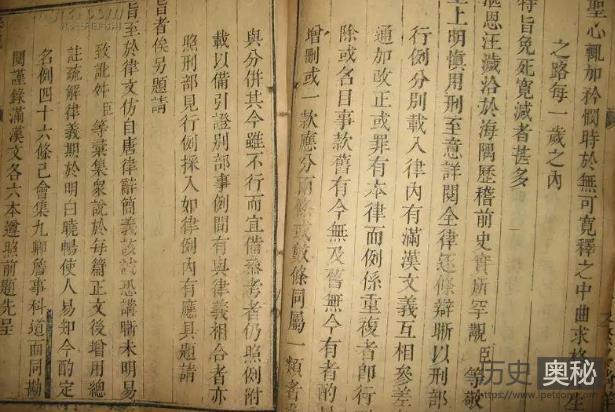 聖心輒加矜憫時於無可寬釋之中曲求
之路每一歲之內
特旨免死寬減者甚多
恩汪濊洽於海隅歷稽前史實所罕覯臣等敬
上明慎用刑至意詳閱全律逐條辯晣以刑部
行例分別載入律內有滿漢文義互相參差
通加改正或罪有本律而例係重複者卽行
除或名目事款舊有今無及舊無今有者酌
增刪或一款應分兩條或數條同屬一類者
與分併其今雖不行而宜備叅考者仍照例附
載以備引證別部事例間有與律義相合者亦
照刑部見行例採入如律例內有應具題請
旨者俟另題請
旨至於律文仿自唐律辭簡義該誠恐講晣未明易
致訛舛臣等彙集眾說於每篇正文後增用總
註疏解律義期於明白曉暢使人易知今酌定
名例四十六條已會集九卿詹事科道面同勘
閱謹錄滿漢文各六本遵照前題先呈
历史奥秘